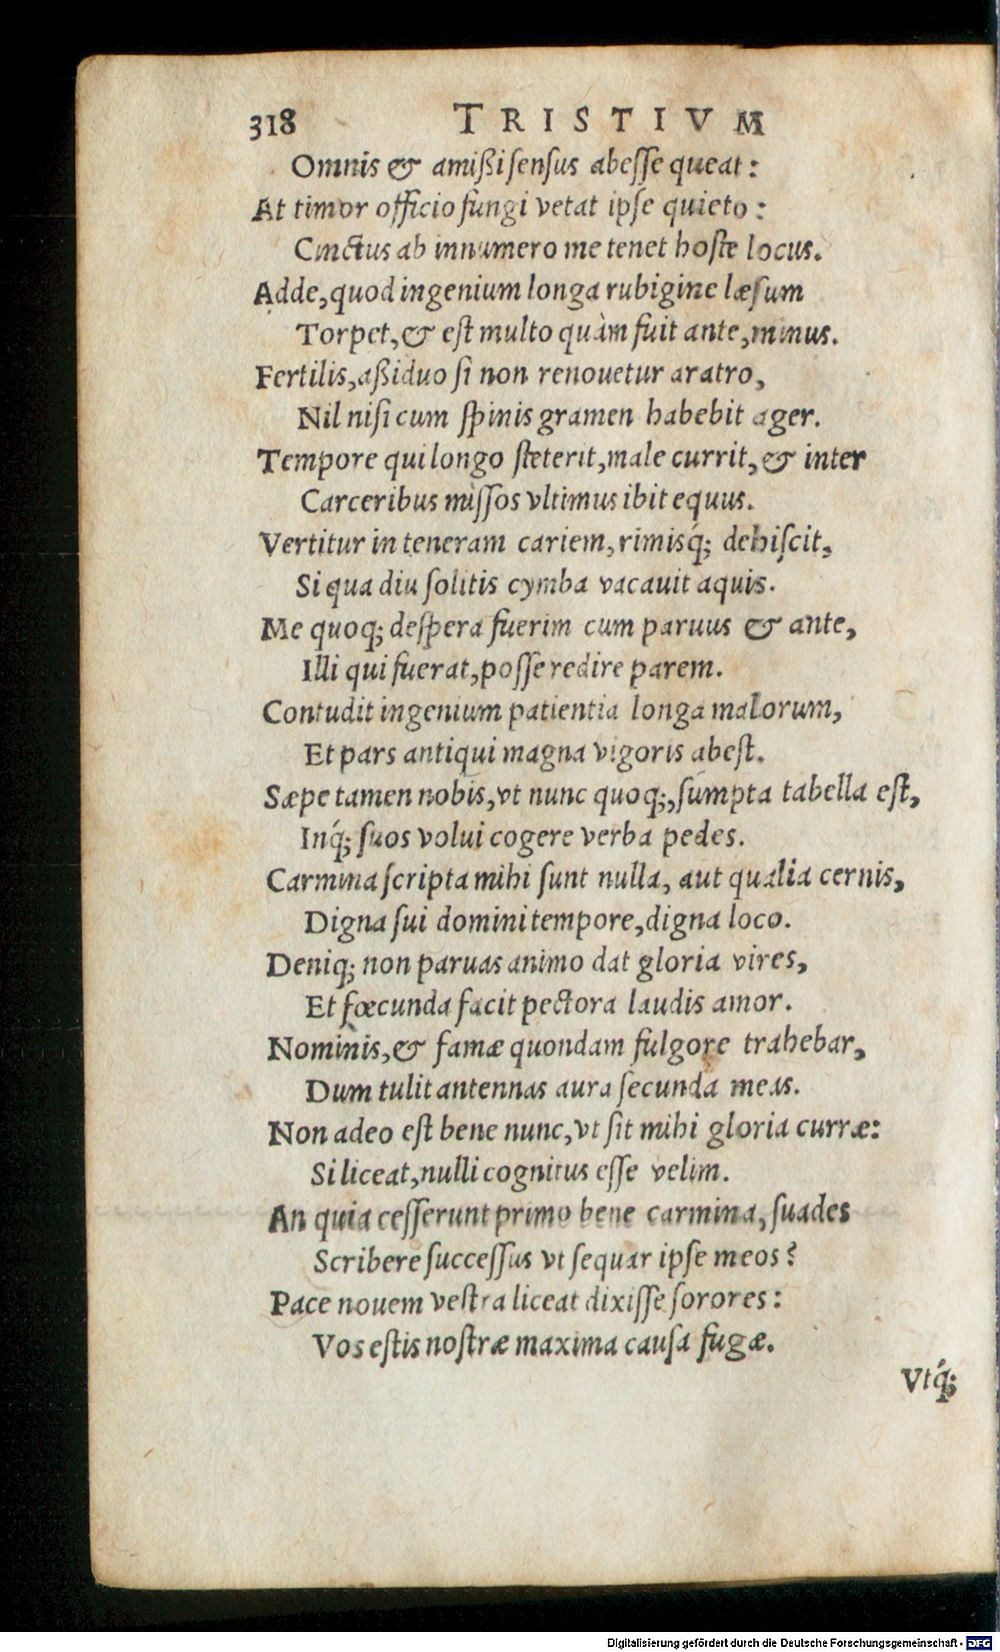 318 TRISTIVM
Omnis & amißi sensus abesse queat:
At timor officio fungi vetat ipse quieto:
Cinctus ab innumero me tenet hoste locus.
Adde, quod ingenium longa rubigine læsum
Torpet, & est multo quàm fuit ante, minus.
Fertilis, aßiduo si non renouetur aratro,
Nil nisi cum spinis gramen habebit ager.
Tempore qui longo steterit, male currit, & inter
Carceribus missos vltimus ibit equus.
Vertitur in teneram cariem, rimisq́; dehiscit,
Si qua diu solitis cymba vacauit aquis.
Me quoq; despera fuerim cum paruus & ante,
Illi qui fuerat, posse redire parem.
Contudit ingenium patientia longa malorum,
Et pars antiqui magna vigoris abest.
Sæpe tamen nobis, vt nunc quoq;, sumpta tabella est,
Inq́; suos volui cogere verba pedes.
Carmina scripta mihi sunt nulla, aut qualia cernis,
Digna sui domini tempore, digna loco.
Deniq; non paruas animo dat gloria vires,
Et fœcunda facit pectora laudis amor.
Nominis, & famæ quondam fulgore trahebar,
Dum tulit antennas aura secunda meas.
Non adeo est bene nunc, vt sit mihi gloria curræ:
Si liceat, nulli cognitus esse velim.
An quia cesserunt primo bene carmina, suades
Scribere successus vt sequar ipse meos?
Pace nouem vestra liceat dixisse sorores:
Vos estis nostræ maxima causa fugæ.
Vtq́;
Digitalisierung gefördert durch die Deutsche Forschungsgemeinschaft - DFG